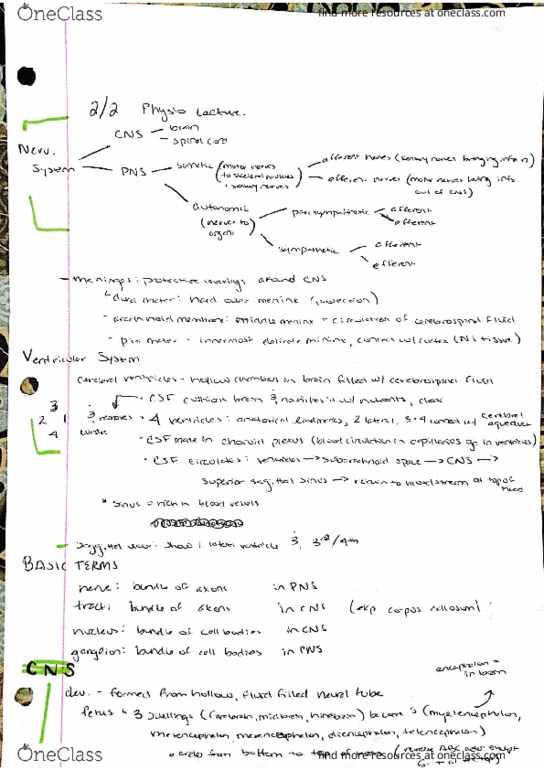 OneClass
find more resources at oneclass.com
2/2 Physio Lecture.
CNS
brain
spinal cord
Nerv.
System
PNS
somatic (motor nerves to skeletal muscles + sensory nerves)
afferent nerves (sensory nerves bringing info in)
efferent nerves (motor nerves taking info out of CNS)
autonomic
(nerves to organs)
parasympathetic
afferent
efferent
sympathetic
afferent
efferent
- meninges: protective coverings around CNS
dura mater: hard outer meninx (protection)
- arachnoid membrane: middle meninx = circulation of cerebrospinal fluid
- pia mater - innermost delicate meninx, contact w/ cortex (N.S tissue)
Ventricular System
cerebral ventricles - hollow chambers in brain filled w/ cerebrospinal fluid
• CSF cushion brain & nourishes w/ nutrients, clear
& removes waste
3
2 1
4
• 4 ventricles: anatomical landmarks, 2 lateral, 3+4 connect w/ cerebral aqueduct
• CSF made in choroid plexus (blood circulation in capillaries in ventricles)
• CSF circulates: ventricles → subarachnoid space → CNS →
superior sagittal sinus → return to bloodstream at top of head
* Sinus = rich in blood vessels
- Saggital view: show 1 lateral ventricle & 3rd/4th
BASIC TERMS
nerve: bundle of axons in PNS
tract: bundle of axons in CNS (corpus callosum)
nucleus: bundle of cell bodies in CNS
ganglion: bundle of cell bodies in PNS
CNS
encephalon = in brain
dev. - formed from hollow, fluid filled neural tube
fetus 3 swellings (forebrain, midbrain, hindbrain) become 5 (myelencephalon,
metencephalon, mesencephalon, diencephalon, telencephalon)
order from bottom to top of (reverse ABC order except
OneClass
find more resources at oneclass.com